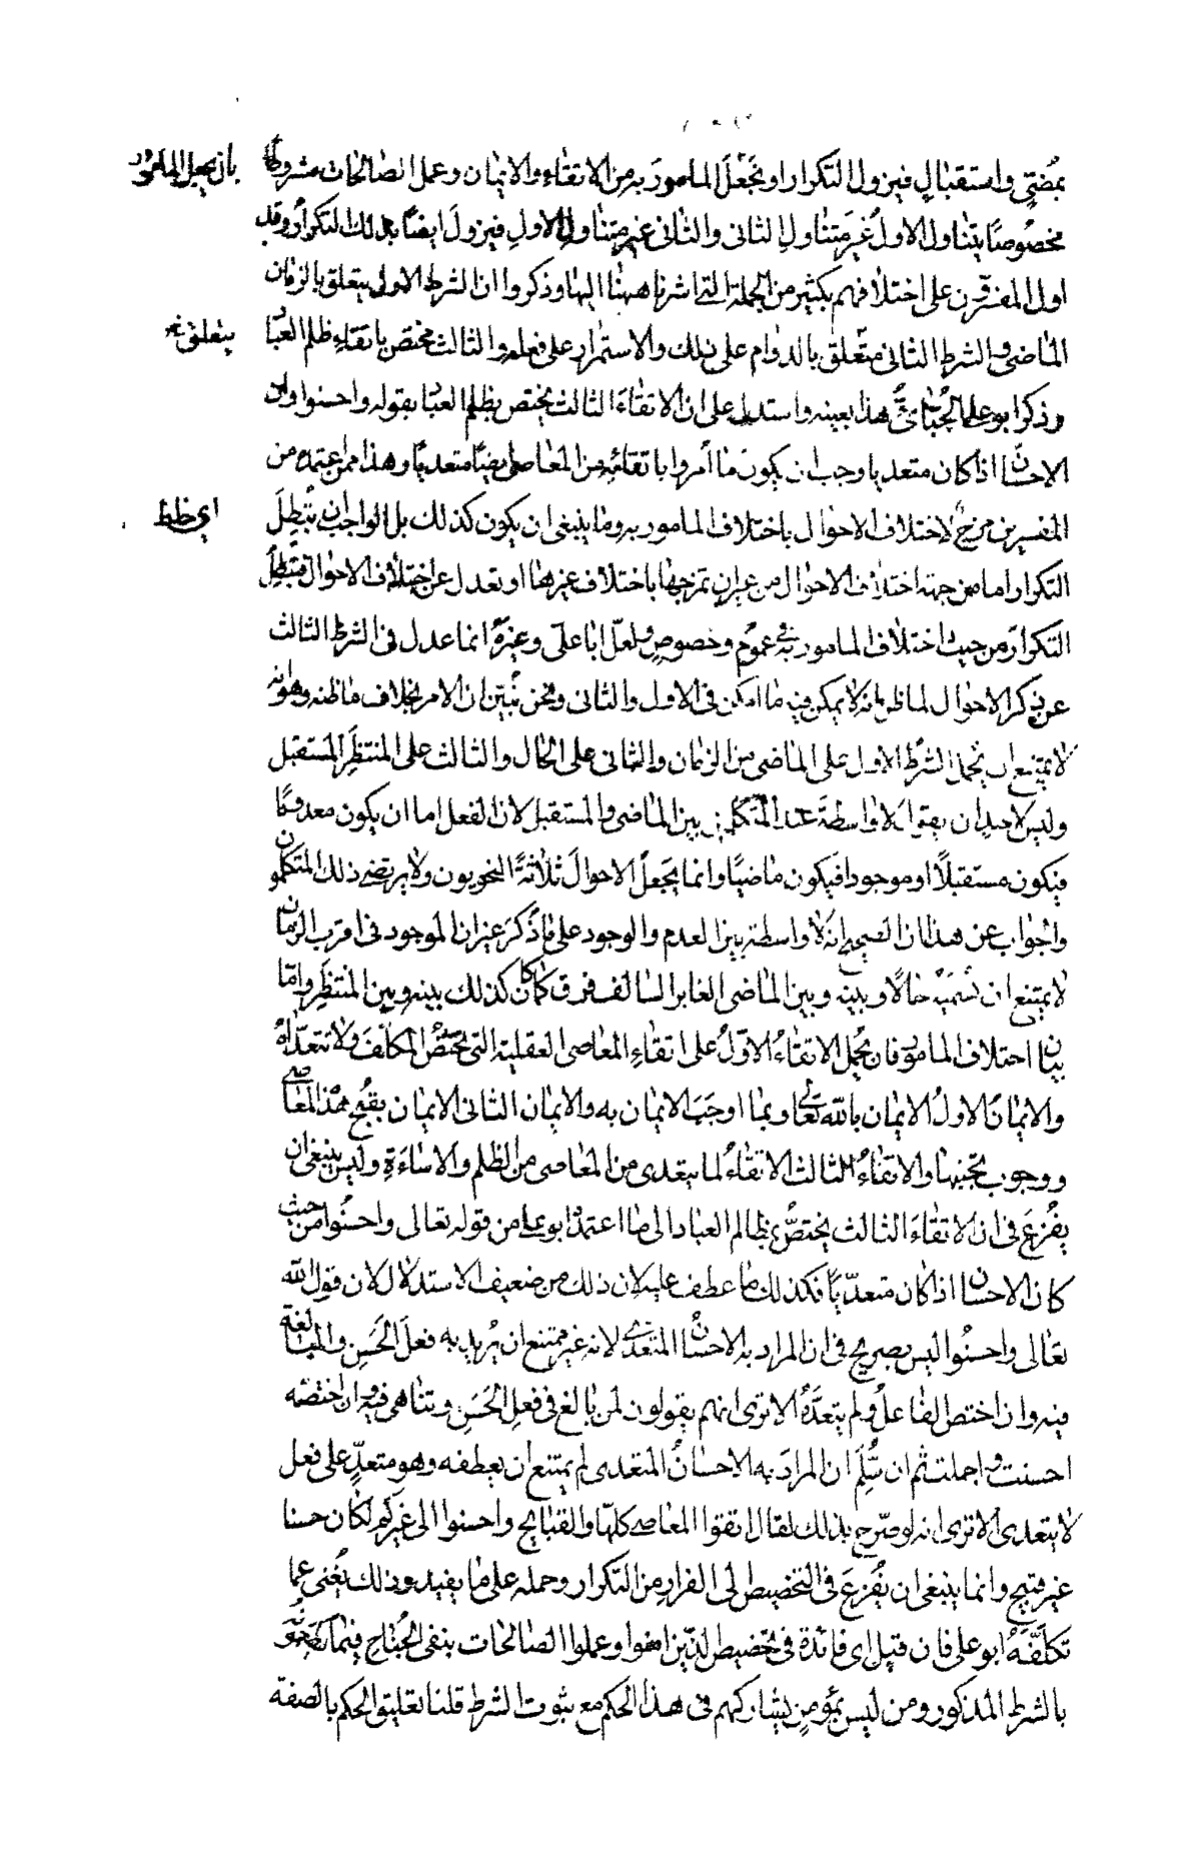 بمُضيّ واستقبالٍ فيزول التكرار او نجعلَ المامورَ به من الاتقاء والايمان وعمل الصالحات مشروطا
بان يجعل المامور
مخصُوصًا يتناول الاولُ غيرَ متناولِ الثانى والثانى غير متناولِ الاولِ فيزولَ ايضًا بذلك التكرارُ وقد
اول المفسرون على اختلافهم بكثير من الجملة التى اشرنا ههنا اليها وذكروا ان الشرط الاول يتعلق بالزمان
الماضى والشرط الثانى متعلق بالدوام على ذلك والاستمرار على فعله والثالث مختص باتقاء ظلم العباد
يتعلق
وذكر ابو على الجُبّائىُّ هذا بعينه واستدل على ان الاتقاءَ الثالث يختص بظلم العباد بقوله واحسنوا وان
الاحسان اذا كان متعديا وجب ان يكون ما اُمروا باتقائِه من المعاصى ايضًا متعديًا وهذا ممن اعتمده من
المفسرين مزجٌ لاختلاف الاحوال باختلاف المامور به وما ينبغى ان يكون كذلك بل الواجب ان نُبطِلَ
اى خلط
التكرار اما من جهة اختلاف الاحوال من غير ان نمزجها باختلاف غيرها او نعدل عن اختلاف الاحوال فنبطلُ
التكرارَ من حيث اختلاف المامور به فى عموم وخصوصٍ ولعلّ ابا على وغيرهُ انما عدل فى الشرط الثالث
عن ذكر الاحوال لما ظن انه لا يمكن فيه ما امكن فى الاول والثانى ونحن نُبيّن ان الامر بخلاف ما ظنه وهو انه
لا يمتنع ان يُحمل الشرطُ الاول على الماضى من الزمان والثانى على الحال والثالث على المنتظَرِ المستقبل
وليس لاحد ان يقول لا واسطةَ عند المتكلمين بين الماضى والمستقبل لان الفعل اما ان يكون معدومًا
فيكون مستقبلاً او موجودا فيكون ماضيًا وانما يَجعلُ الاحوالَ ثلاثةً النحويون ولا يرتضى ذلك المتكلمون
والجواب عن هذا ان الصحيح انه لا واسطة بين العدم والوجود على ما ذُكرَ غير ان الموجود فى اقرب الزمان
لا يمتنع ان نُسمّيه حالاً وبينه وبين الماضى الغابر السالف فرق كما كان كذلك بينه وبين المنتظَرِ وامّا
بيان اختلاف المامور به فان يُحمل الاتقاءُ الاوّلُ على اتقاءِ المعاصى العقلية التى تختصُّ المكلَّفَ ولا تتعدّاهُ
والايمانُ الاولُ الايمان بالله تعالى وبما اوجَبَ الايمان به والايمان الثانى الايمان بقُبح هذه المعاصى
ووجوب تجنبها والاتقاءُ الثالث الاتقاءُ لما يتعدى من المعاصى من الظلم والاساءةِ وليس ينبغى ان
يفُزعَ فى ان الاتقاءَ الثالث يختصُّ بظالم العباد الى ما اعتمدهُ ابو على من قوله تعالى واحسنُوا من حيث
كان الاحسان اذا كان متعدّيًا فكذلك ما عطف عليه لان ذلك من ضعيف الاستدلال لان قول الله
تعالى واحسنُوا ليس بصريح فى ان المراد به الاحسانُ المتعدى لانه غير ممتنع ان يُريد به فعلَ الحَسَنِ والمبالغة
فيه وان اختص الفاعلَ ولم يتعدَّهُ الا ترى انهم يقولون لمن بالغ فى فعل الحَسَنِ وتناهى فيه وان اختصّه
احسنت واجملت ثم ان سُلِّمَ ان المرادَ به الاحسانُ المتعدى لم يمتنع ان يعطفه وهو متعدٍّ على فعل
لا يتعدى الا ترى انه لو صرّح بذلك لقال اتقوا المعاصى كلّها والقبايح واحسنوا الى غيركم لكان حسنا
غير قبيح وانما ينبغى ان يفُزعَ فى التخصيص الى الفرار من التكرار وحمله على ما يفيد وذلك يُغنى عما
تكلّفَهُ ابو على فان قيل اى فائدة فى تخصيص الذين امنوا وعملوا الصالحات بنفى الجُناح فيما
بالشرط المذكور ومن ليس بمؤمنٍ يشاركهم فى هذا الحكم مع ثبوت الشرط قلنا تعليق الحكم بالصفة